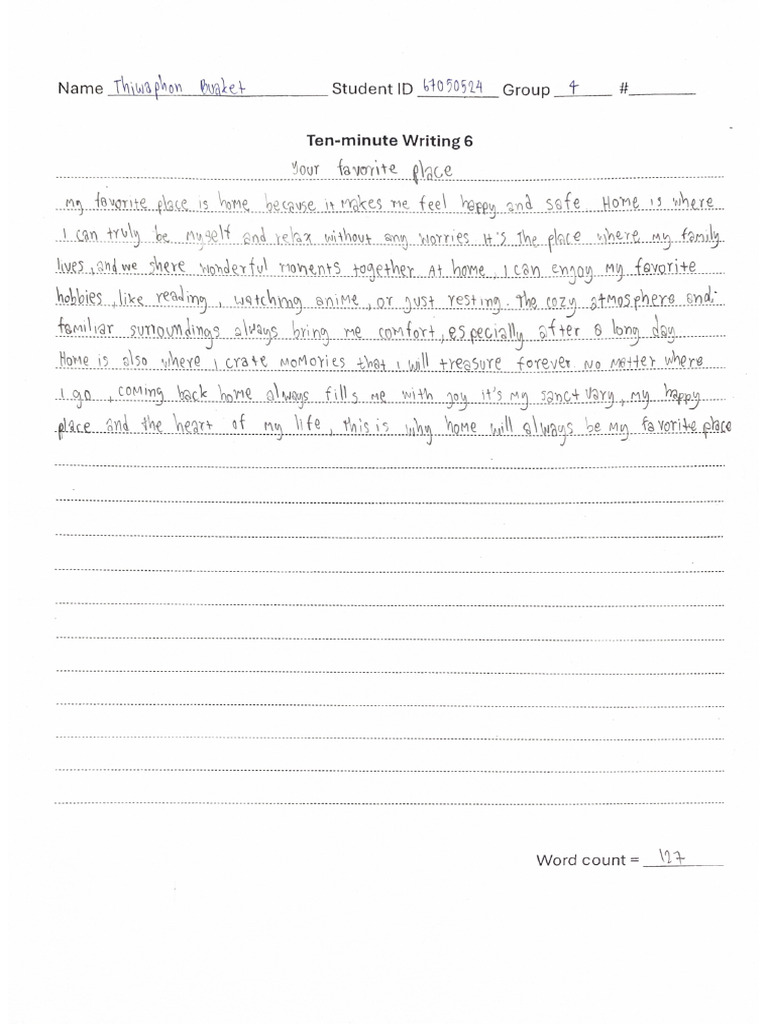 Name Thiwaphon Buaket Student ID 67050524 Group 4 #
Ten-minute Writing 6
Your favorite place
My favorite place is home because it makes me feel happy and safe Home is where
I can truly be myself and relax without any worries It's the place where my family
lives, and we shere wonderful moments together At home, I can enjoy my favorite
hobbies, like reading, watching anime, or just resting. The cozy atmosphere and
familiar surroundings always bring me comfort, especially after a long day
Home is also where I crate memories that I will treasure forever No matter where
I go, coming back home always fills me with joy it's my sanctvary, my happy
place and the heart of my life, This is why home will always be my favorite place
Word count = 127